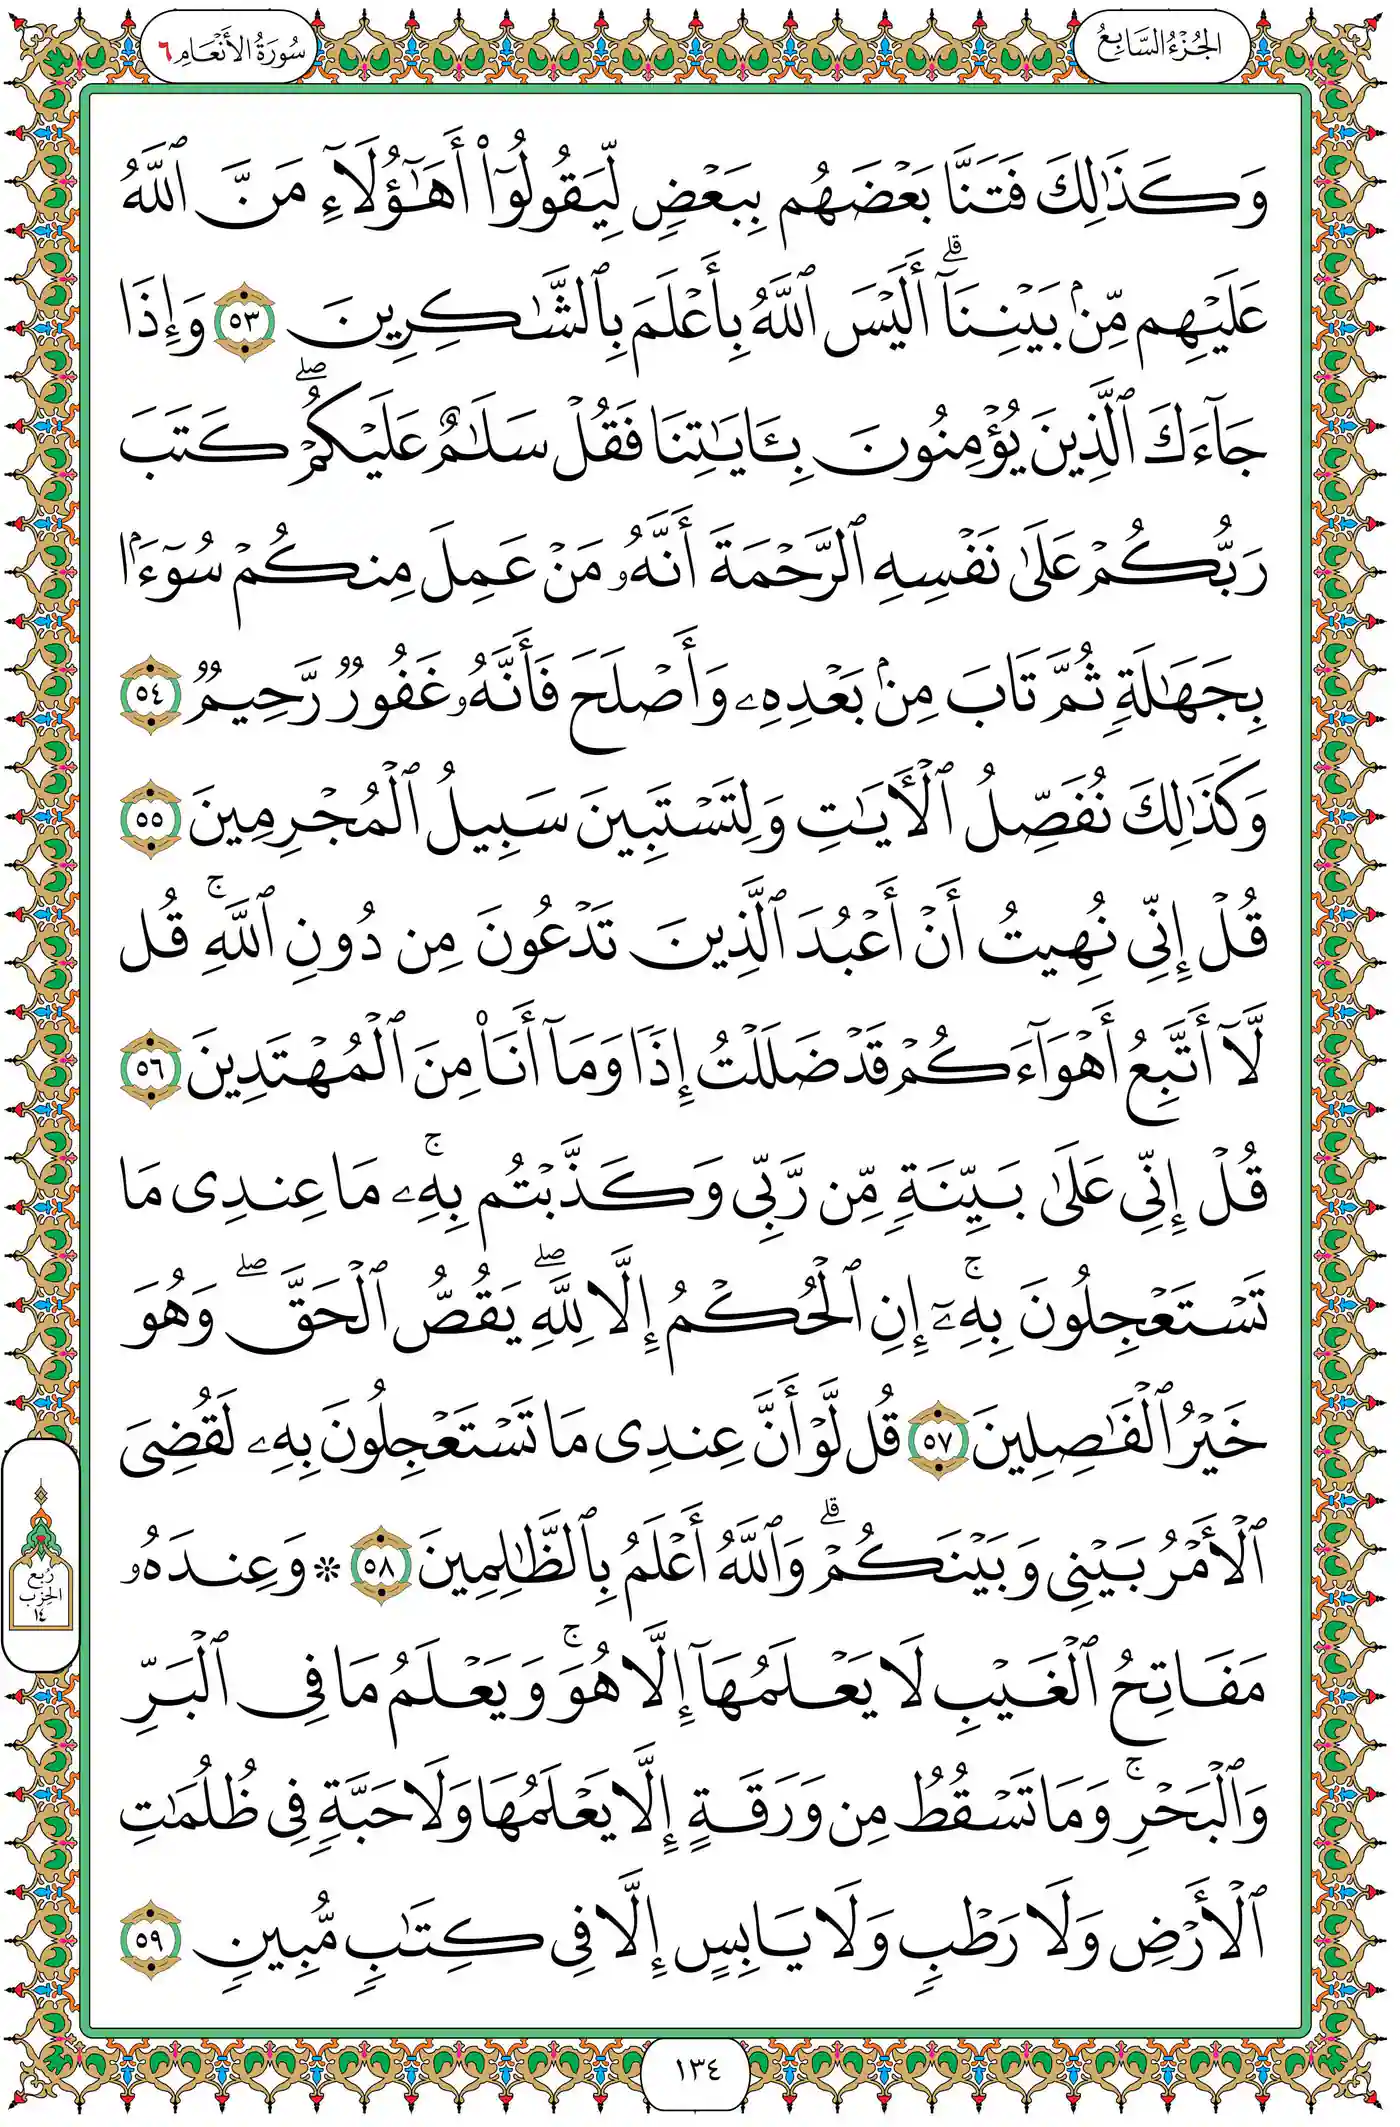 الجُزْءُ السَّابِعُ
سُورَةُ الأَنْعَامِ ٦
وَكَذَٰلِكَ فَتَنَّا بَعْضَهُم بِبَعْضٍ لِّيَقُولُوٓا۟ أَهَـٰٓؤُلَآءِ مَنَّ ٱللَّهُ
عَلَيْهِم مِّنۢ بَيْنِنَآ ۗ أَلَيْسَ ٱللَّهُ بِأَعْلَمَ بِٱلشَّـٰكِرِينَ ٥٣ وَإِذَا
جَآءَكَ ٱلَّذِينَ يُؤْمِنُونَ بِـَٔايَـٰتِنَا فَقُلْ سَلَـٰمٌ عَلَيْكُمْ ۖ كَتَبَ
رَبُّكُمْ عَلَىٰ نَفْسِهِ ٱلرَّحْمَةَ أَنَّهُۥ مَنْ عَمِلَ مِنكُمْ سُوٓءًۢا
بِجَهَـٰلَةٍ ثُمَّ تَابَ مِنۢ بَعْدِهِۦ وَأَصْلَحَ فَأَنَّهُۥ غَفُورٌ رَّحِيمٌ ٥٤
وَكَذَٰلِكَ نُفَصِّلُ ٱلْـَٔايَـٰتِ وَلِتَسْتَبِينَ سَبِيلُ ٱلْمُجْرِمِينَ ٥٥
قُلْ إِنِّى نُهِيتُ أَنْ أَعْبُدَ ٱلَّذِينَ تَدْعُونَ مِن دُونِ ٱللَّهِ ۚ قُل
لَّآ أَتَّبِعُ أَهْوَآءَكُمْ قَدْ ضَلَلْتُ إِذًا وَمَآ أَنَا۠ مِنَ ٱلْمُهْتَدِينَ ٥٦
قُلْ إِنِّى عَلَىٰ بَيِّنَةٍ مِّن رَّبِّى وَكَذَّبْتُم بِهِۦ ۚ مَا عِندِى مَا
تَسْتَعْجِلُونَ بِهِۦٓ ۚ إِنِ ٱلْحُكْمُ إِلَّا لِلَّهِ ۖ يَقُصُّ ٱلْحَقَّ ۖ وَهُوَ
خَيْرُ ٱلْفَـٰصِلِينَ ٥٧ قُل لَّوْ أَنَّ عِندِى مَا تَسْتَعْجِلُونَ بِهِۦ لَقُضِىَ
ٱلْأَمْرُ بَيْنِى وَبَيْنَكُمْ ۗ وَٱللَّهُ أَعْلَمُ بِٱلظَّـٰلِمِينَ ٥٨ * وَعِندَهُۥ
مَفَاتِحُ ٱلْغَيْبِ لَا يَعْلَمُهَآ إِلَّا هُوَ ۚ وَيَعْلَمُ مَا فِى ٱلْبَرِّ
وَٱلْبَحْرِ ۚ وَمَا تَسْقُطُ مِن وَرَقَةٍ إِلَّا يَعْلَمُهَا وَلَا حَبَّةٍ فِى ظُلُمَـٰتِ
ٱلْأَرْضِ وَلَا رَطْبٍ وَلَا يَابِسٍ إِلَّا فِى كِتَـٰبٍ مُّبِينٍ ٥٩
رُبْع
الحِزْب
١٤
١٣٤